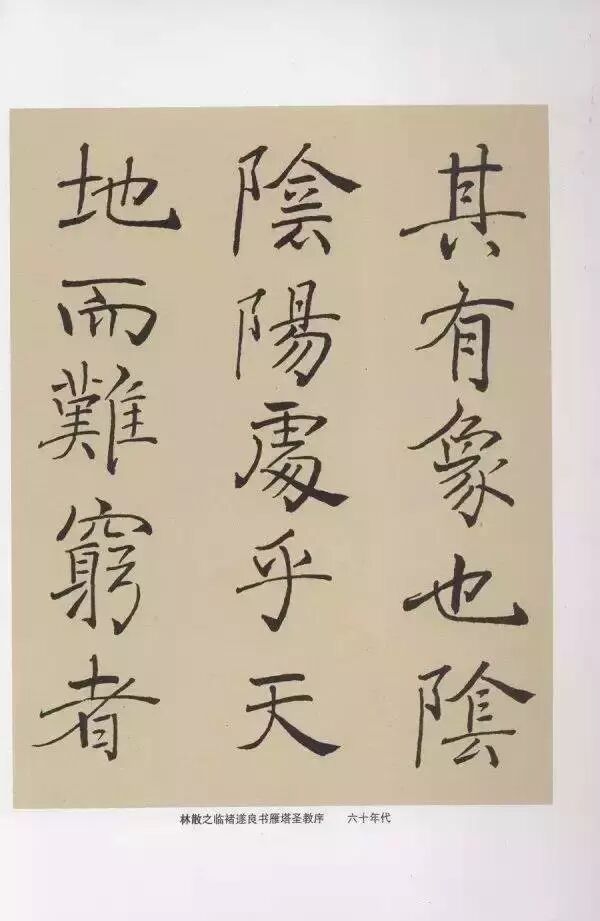 其有象也隂
陰陽處乎天
地而難窮者
林散之临褚遂良书雁塔圣教序　六十年代